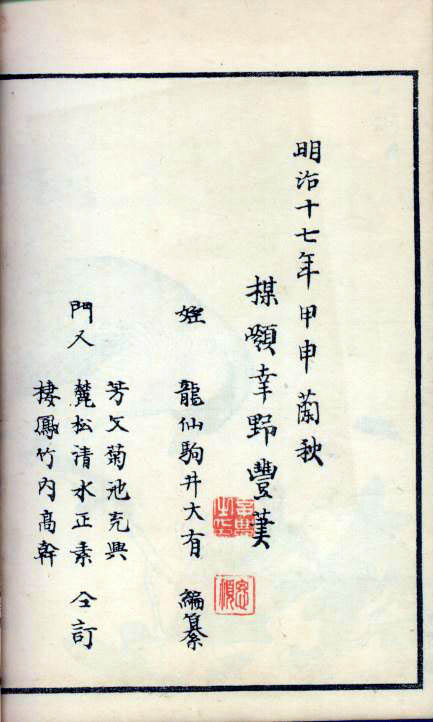 明治十七年甲申蘭秋
楳嶺幸野豐
姪 龍仙駒井大有 編纂
芳文菊池充興
門人 麓松清水正素 仝訂
棲鳳竹内高幹